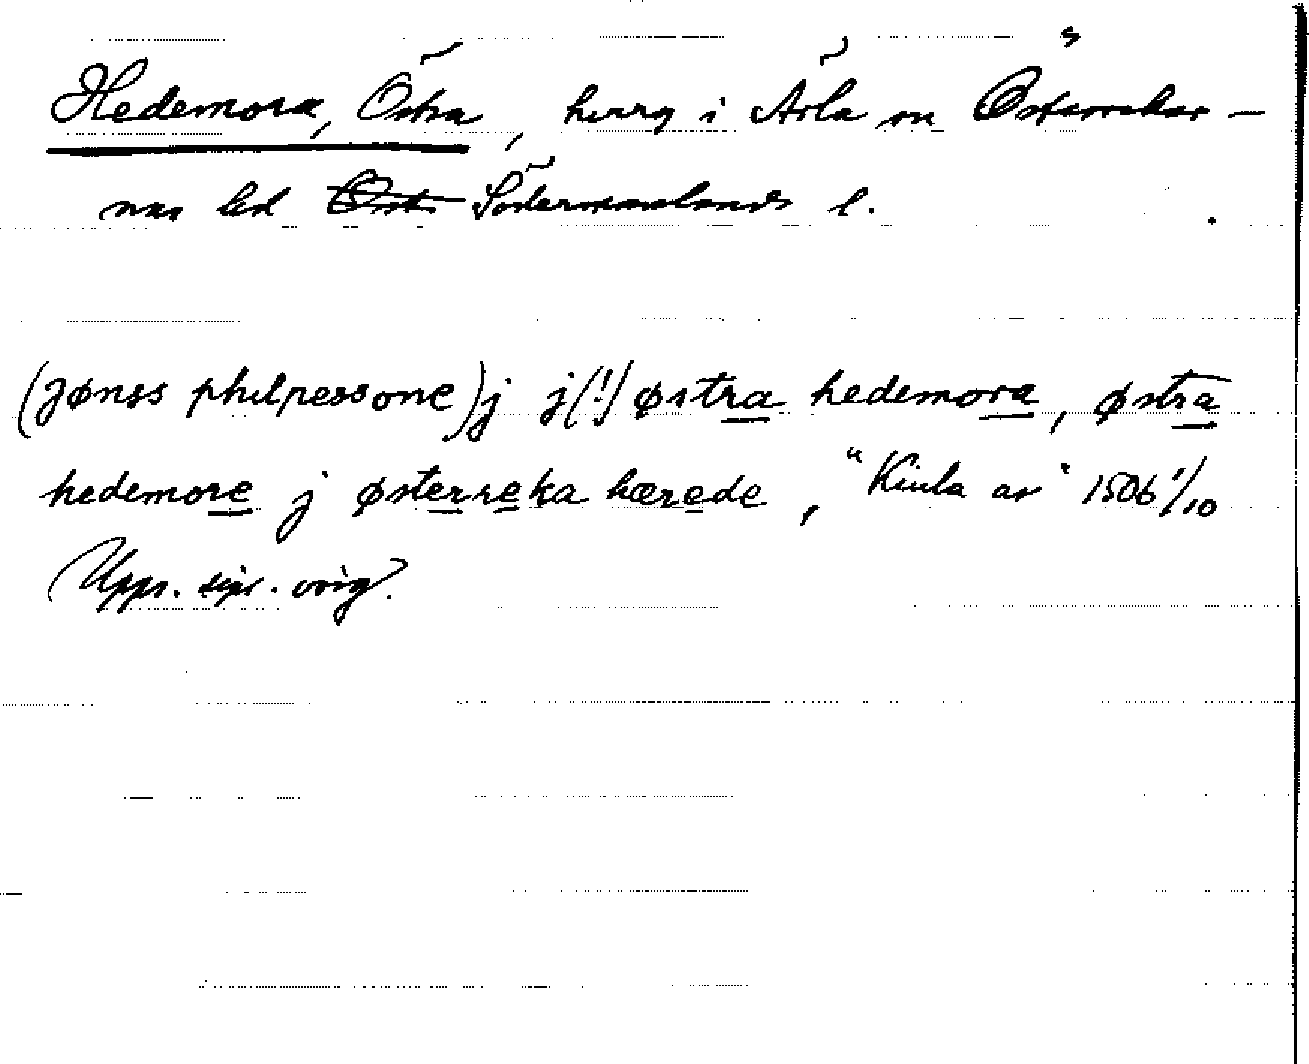 Hedemora, Östra, herrg i Ärla sn Österrekar-
nas hd Öst. Södermanlands l.
(jønss philpessone) j j(!) østra hedemora, østra
hedemore j østerreka hærede, "Kiula ar" 1506 1/10
Upps. sigr. orig.